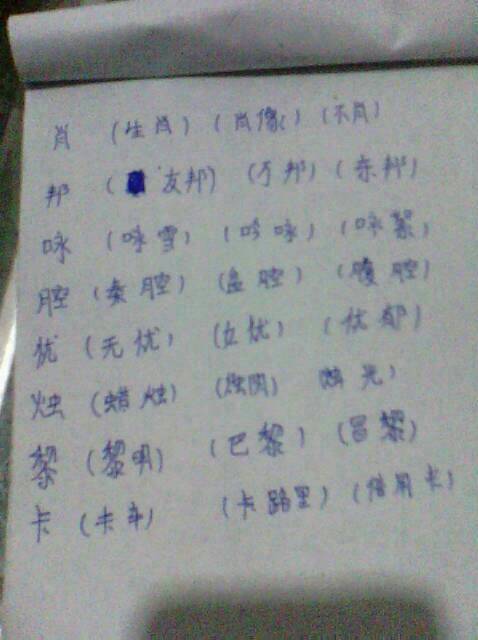 肖 （生肖）（肖像）（不肖）
邦 （友邦）（万邦）（东邦）
咏 （咏雪）（吟咏）（咏絮）
腔 （秦腔）（血腔）（腹腔）
忧 （无忧）（忧）（忧郁）
烛 （蜡烛）（烛肉） 烛光）
黎 （黎明）（巴黎）（昌黎）
卡 （卡车）（卡路里）（信用卡）